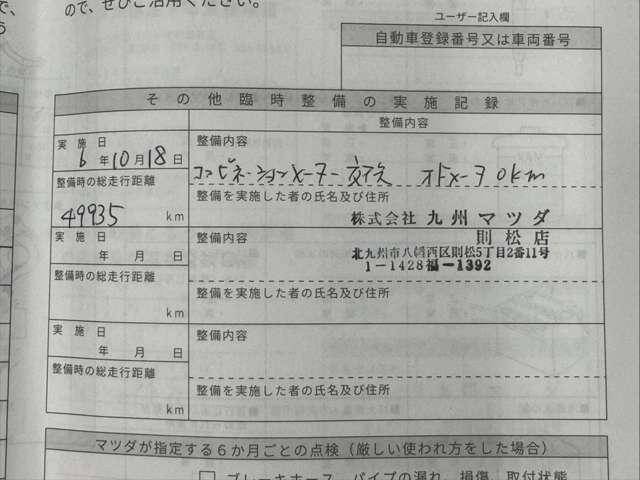 で、
ので、ぜひご活用ください。
ユーザー記入欄
自動車登録番号又は車両番号
その他臨時整備の実施記録
整備内容
実施日
6年10月18日
整備内容
コンビネーションメーター交換 オドメータ0km
整備時の総走行距離
49935 km
整備を実施した者の氏名及び住所
株式会社九州マツダ
則松店
北九州市八幡西区則松5丁目2番11号
1-1428福-1392
実施日
年 月 日
整備内容
整備時の総走行距離
km
整備を実施した者の氏名及び住所
実施日
年 月 日
整備内容
整備時の総走行距離
km
整備を実施した者の氏名及び住所
マツダが指定する6か月ごとの点検(厳しい使われ方をした場合)
□ ブレーキホース、パイプの漏れ、損傷、取付状態